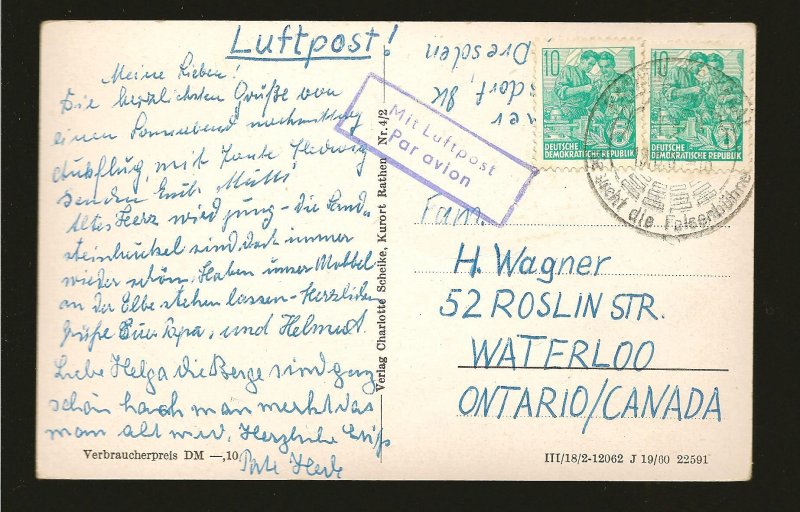 Luftpost!
Meine Lieben!
Die herzlichsten Grüße von
einen Sonnabend nachmittag
Ausflug, mit Tante Hedwig
senden Euch Mutti
Altes Herz wird jung - die Sand-
steinhückel sind doch immer
wieder schön. Haben unser Mobbel
an der Elbe stehen lassen - Herzlichen
Grüße Euer Papa, und Helmut.
Liebe Helga die Berge sind ganz
schön hoch man merkt das
man alt wird. Herzliche Grüße
Tante
Verbraucherpreis DM —,10
Verlag Charlotte Scheike, Kurort Rathen Nr. 4/2
Dresden
Mit Luftpost
Par avion
10
DEUTSCHE
DEMOKRATISCHE REPUBLIK
10
DEUTSCHE
DEMOKRATISCHE REPUBLIK
sucht die Felsenbühne
Fam.
H. Wagner
52 ROSLIN STR.
WATERLOO
ONTARIO/CANADA
III/18/2-12062 J 19/60 22591